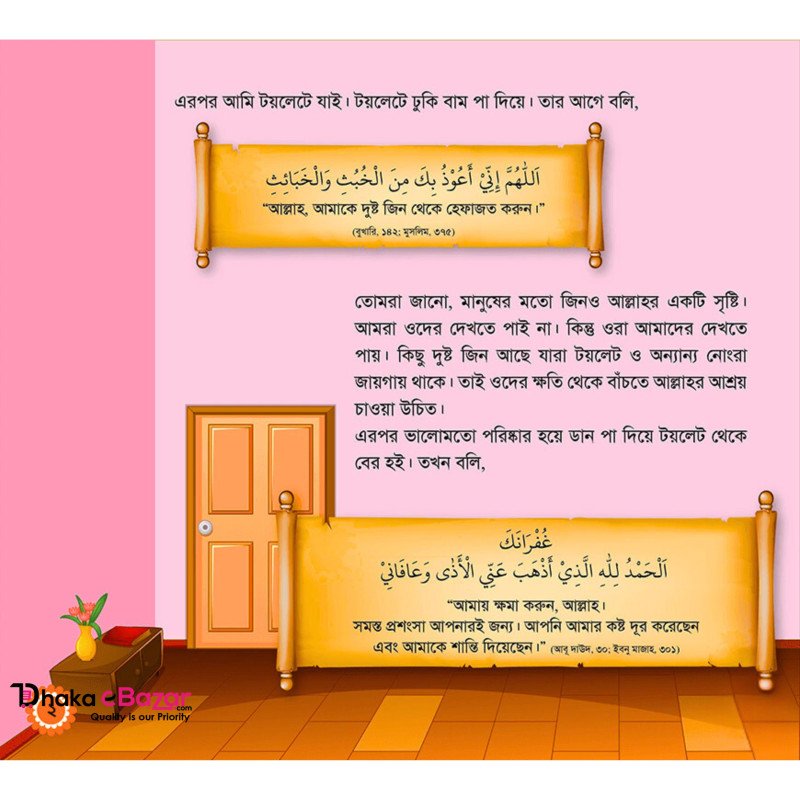 এরপর আমি টয়লেটে যাই। টয়লেটে ঢুকি বাম পা দিয়ে। তার আগে বলি,
اَللّٰهُمَّ إِنِّيْ أَعُوْذُ بِكَ مِنَ الْخُبُثِ وَالْخَبَائِثِ
“আল্লাহ, আমাকে দুষ্ট জিন থেকে হেফাজত করুন।”
(বুখারি, ১৪২; মুসলিম, ৩৭৫)
তোমরা জানো, মানুষের মতো জিনও আল্লাহর একটি সৃষ্টি।
আমরা ওদের দেখতে পাই না। কিন্তু ওরা আমাদের দেখতে
পায়। কিছু দুষ্ট জিন আছে যারা টয়লেট ও অন্যান্য নোংরা
জায়গায় থাকে। তাই ওদের ক্ষতি থেকে বাঁচতে আল্লাহর আশ্রয়
চাওয়া উচিত।
এরপর ভালোমতো পরিষ্কার হয়ে ডান পা দিয়ে টয়লেট থেকে
বের হই। তখন বলি,
غُفْرَانَكَ
اَلْحَمْدُ لِلّٰهِ الَّذِيْ أَذْهَبَ عَنِّي الْأَذٰى وَعَافَانِيْ
“আমায় ক্ষমা করুন, আল্লাহ।
সমস্ত প্রশংসা আপনারই জন্য। আপনি আমার কষ্ট দূর করেছেন
এবং আমাকে শান্তি দিয়েছেন।” (আবূ দাউদ, ৩০; ইবনু মাজাহ, ৩০১)
Dhaka eBazar.com
Quality is our Priority